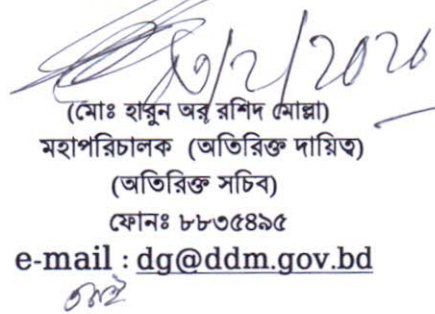 (মোঃ হারুন অর রশিদ মোল্লা)
মহাপরিচালক (অতিরিক্ত দায়িত্ব)
(অতিরিক্ত সচিব)
ফোনঃ ৮৮৩৫৪৯৫
e-mail : dg@ddm.gov.bd